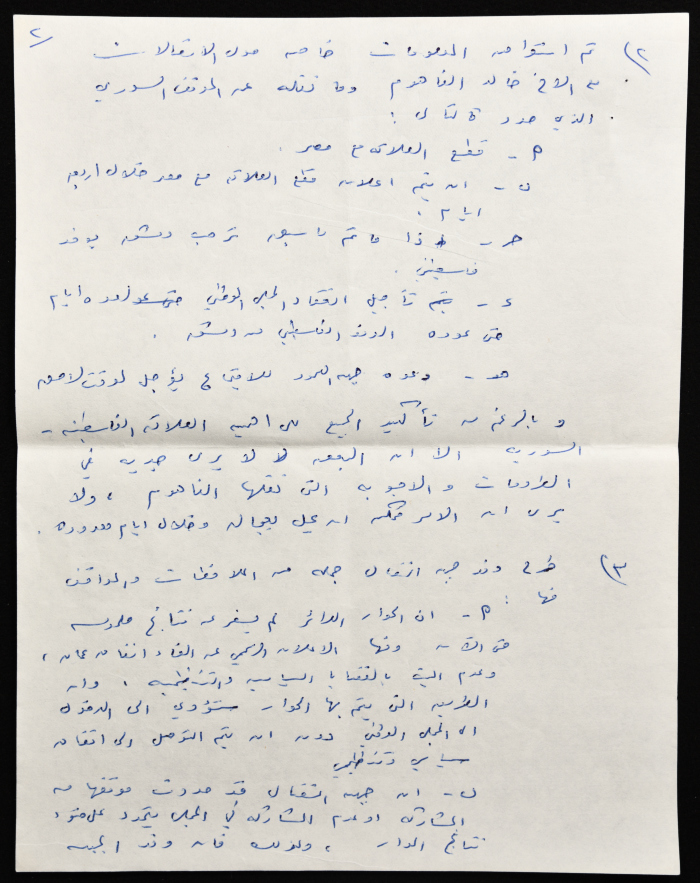 ٢
٢) تم استقبال من المدعوات خاصه حول الاتصالات
مع الاخ خالد الفاهوم وما نقله عن الموقف السوري
الذي حدد كالتالي :
أ - قطع العلاقه مع مصر .
ب - ان يتم اعلان قطع العلاقه مع مصر خلال اربعه
ايام .
حـ - اذا ما تم ما سبق ترحب دمشق بوفد
فلسطيني .
ء - يتم تأجيل انعقاد المجلس الوطني لمده ايام
حتى عوده الوفد الفلسطيني من دمشق .
هـ - دعوه جبهه الصمود للاجتماع يؤجل لوقت لاحق
وبالرغم من تأكيد الجميع على اهميه العلاقه الفلسطينيه -
السوريه الا ان البعض لا يرى جديه في
الطروحات والاجوبه التي نقلها الفاهوم ، ولا
يرى ان الامر ممكن ان يحل بعجاله وخلال ايام معدوده .
٣) طرح وفد جبهه النضال جمله من الملاحظات والمواقف
منها :
أ - ان الحوار الدائر لم يسفر عن نتائج ملموسه
حتى الان ومنها الاعلان الرسمي عن الغاء اتفاق عمان ،
وعدم البت بالقضايا السياسيه والتنظيميه ، وان
الطريقه التي يتم بها الحوار ستؤدي الى الدخول
الى المجلس الوطني دون ان يتم التوصل الى اتفاق
سياسي وتنظيمي
ب - ان جبهه النضال قد حددت موقفها من
المشاركه او عدم المشاركه في المجلس يتحدد على ضوء
نتائج الحوار ، ولذلك فان وفد الجبهه